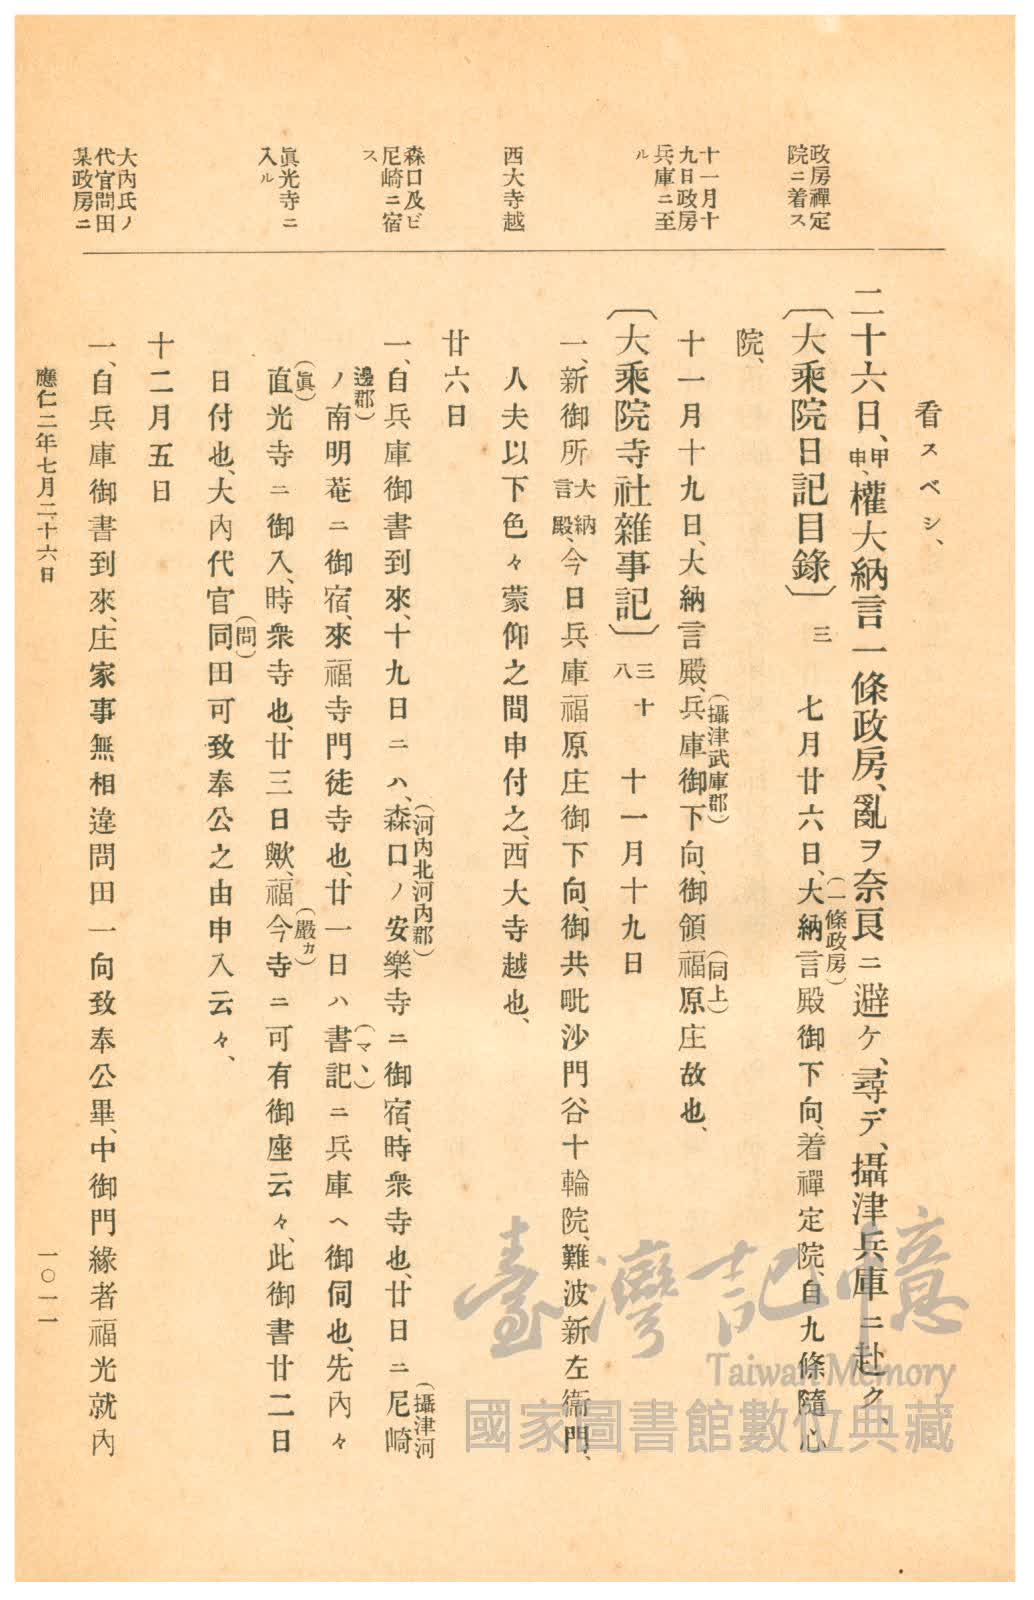 政房禪定
院ニ着ス
十一月十
九日政房
兵庫ニ至
ル
西大寺越
森口及ビ
尼崎ニ宿
ス
眞光寺ニ
入ル
大內氏ノ
代官問田
某政房ニ
看スベシ、
二十六日、甲申、權大納言一條政房、亂ヲ奈良ニ避ケ、尋デ、攝津兵庫ニ赴ク、
〔大乘院日記目錄〕三 七月廿六日、大納言殿(一條政房)御下向、着禪定院自九條隨心
院、
十一月十九日、大納言殿、兵庫(攝津武庫郡)御下向、御領福原庄(同上)故也、
〔大乘院寺社雜事記〕三十八 十一月十九日
一、新御所大納言殿、今日兵庫福原庄御下向、御共毗沙門谷十輪院、難波新左衞門、
人夫以下色々蒙仰之間申付之、西大寺越也、
廿六日
一、自兵庫御書到來、十九日ニハ、森口(河內北河內郡)ノ安樂寺ニ御宿、時衆寺也、廿日ニ尼崎(攝津河
邊郡)ノ南明菴ニ御宿、來福寺門徒寺也、廿一日ハ書記(マヽ)ニ兵庫ヘ御伺也、先內々
直(眞)光寺ニ御入、時衆寺也、廿三日歟、福今(嚴カ)寺ニ可有御座云々、此御書廿二日
日付也、大內代官同(問)田可致奉公之由申入云々、
十二月五日
一、自兵庫御書到來、庄家事無相違問田一向致奉公畢、中御門緣者福光就內
應仁二年七月二十六日
一〇一一
臺灣記憶
Taiwan Memory
國家圖書館數位典藏